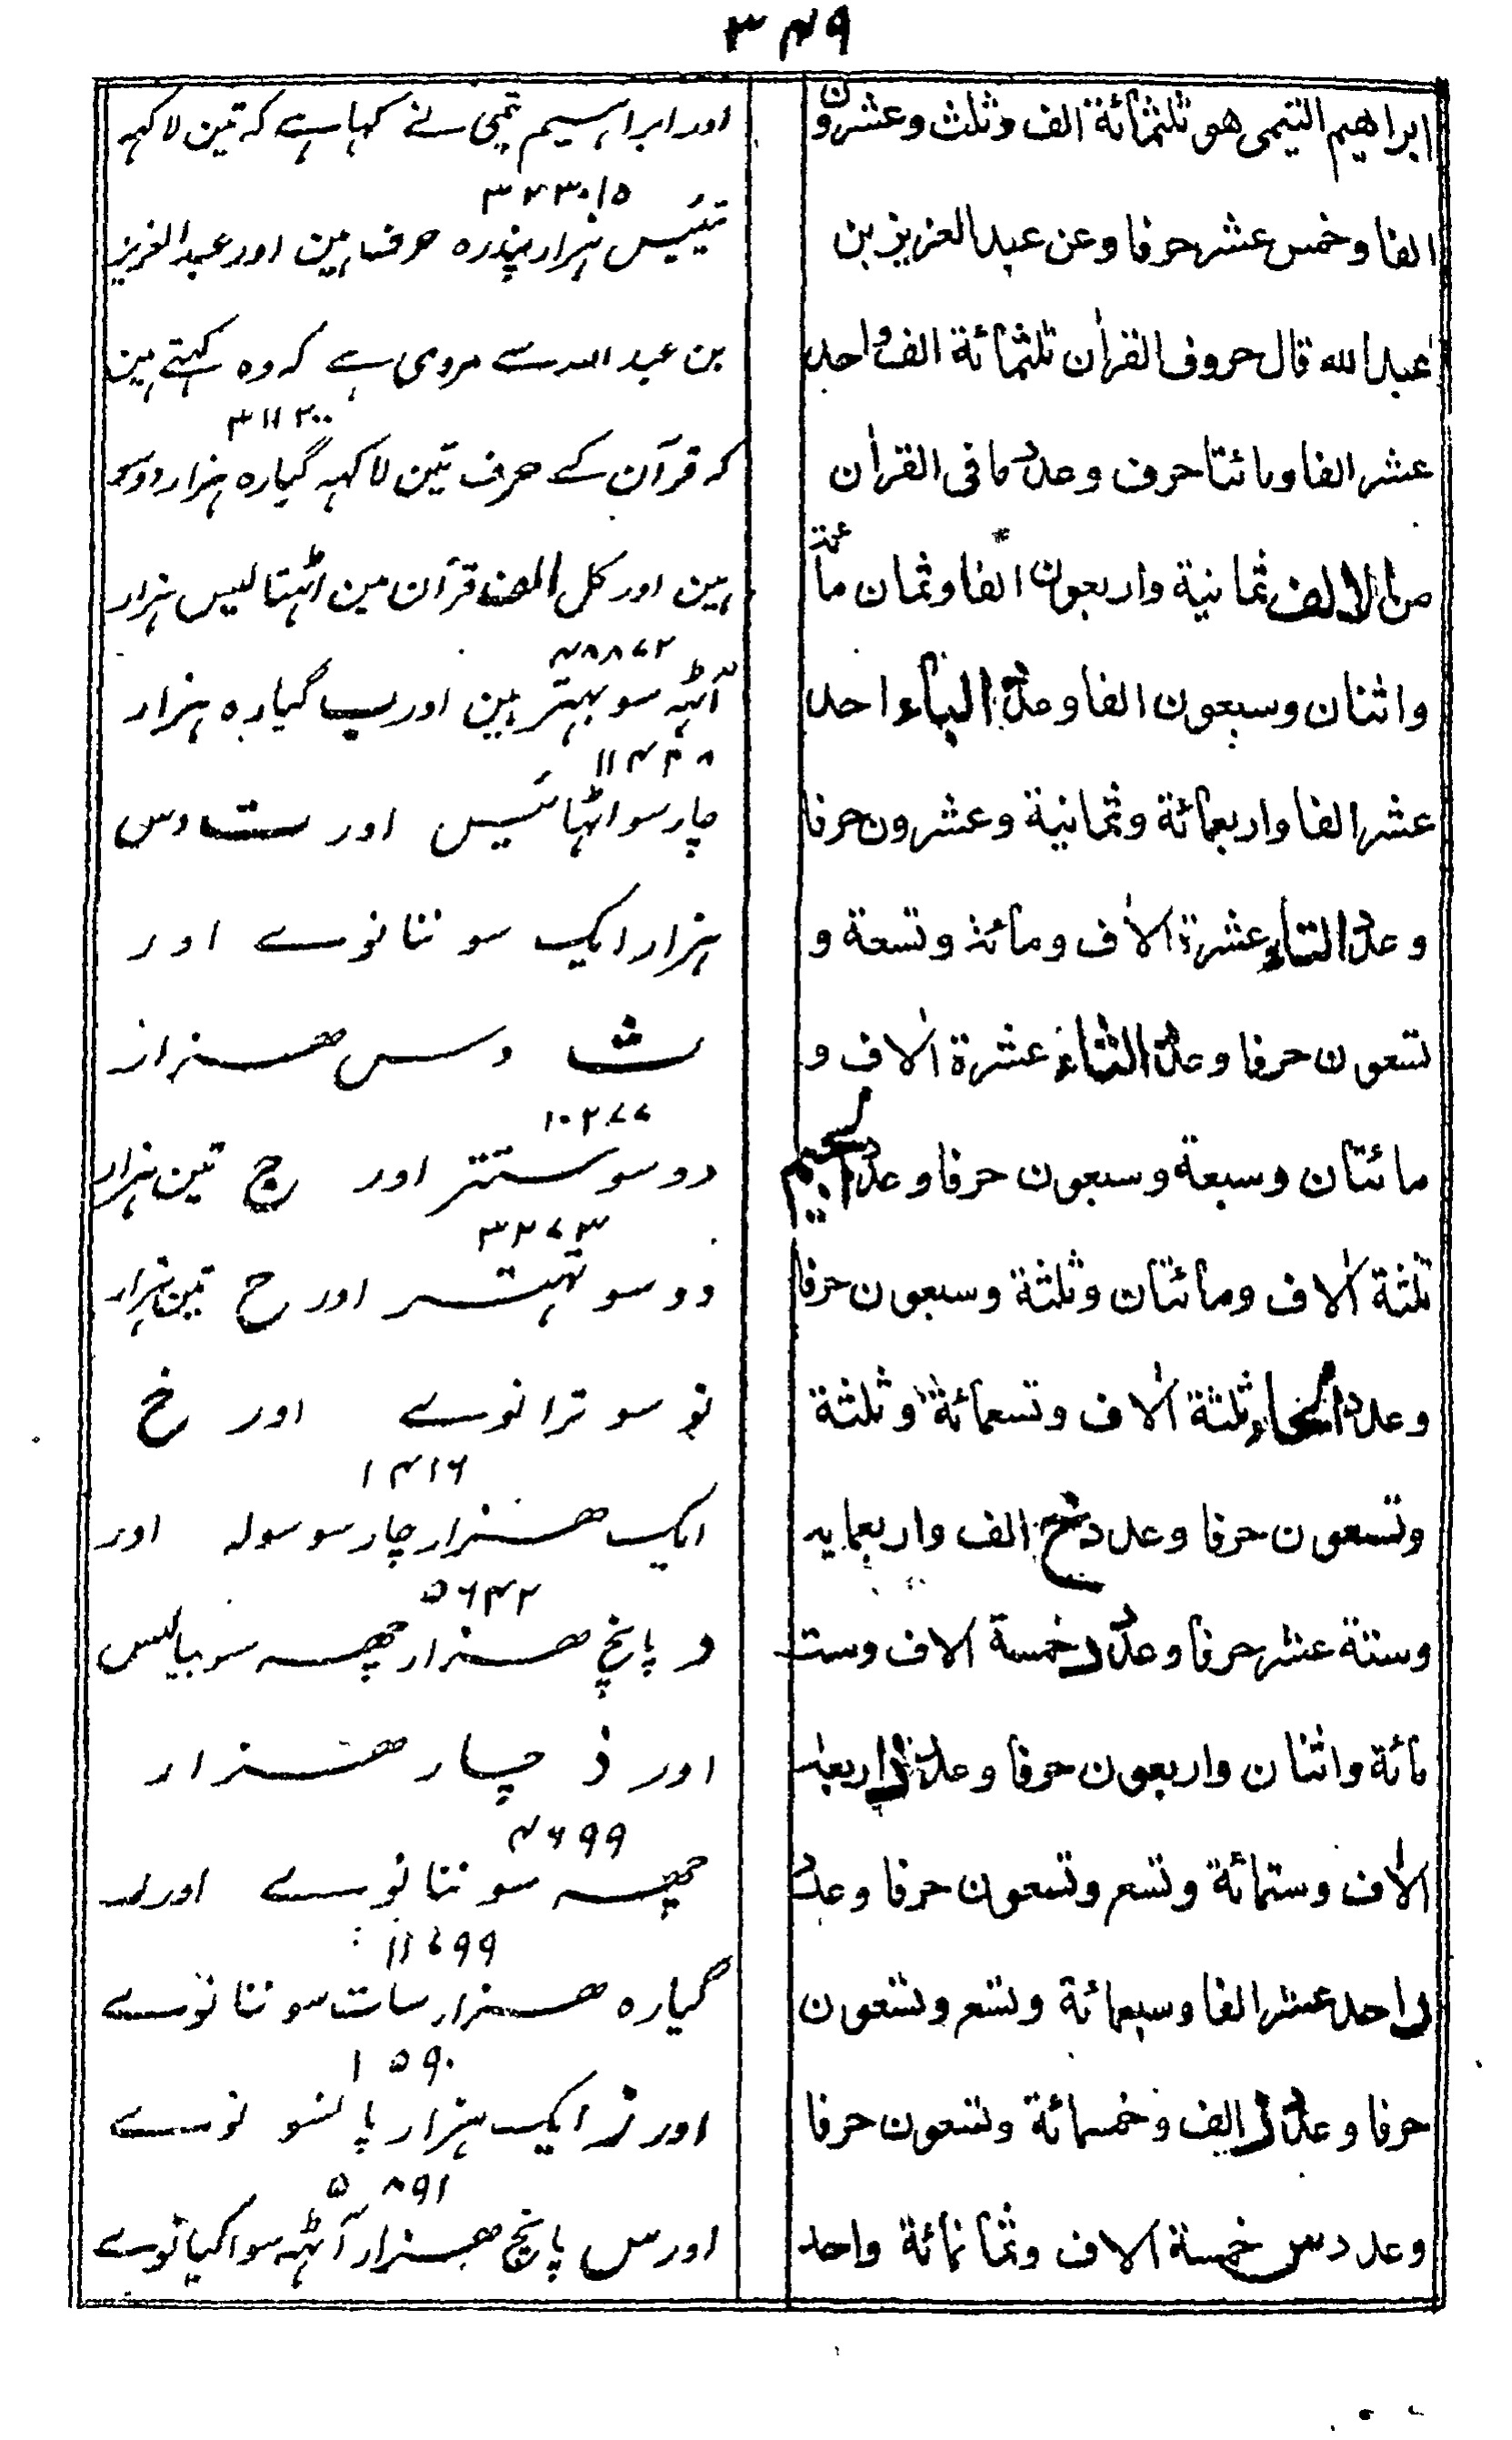 ۳۴۹
ابراهيم التيمى هو ثلثمائة الف وثلث وعشرون
الفا وخمس عشر حرفا وعن عبد العزيز بن
عبد الله قال حروف القراٰن ثلثمائة الف واحد
عشر الفا ومائتا حرف وعدد ما فى القراٰن
من الالف ثمانية واربعون الفا وثمان مائة
واثنان وسبعون الفا وعدد الباء احد
عشر الفا واربعمائة وثمانية وعشرون حرفا
وعدد التاء عشرة اٰلاف ومائة وتسعة و
تسعون حرفا وعدد الثاء عشرة اٰلاف و
مائتان وسبعة وسبعون حرفا وعدد الجيم
ثلثة اٰلاف ومائتان وثلثة وسبعون حرفا
وعدد الحاء ثلثة اٰلاف وتسعمائة وثلثة
وتسعون حرفا وعدد خ الف واربعمايه
وستة عشر حرفا وعدد د خمسة الاف وست
مائة واثنان واربعون حرفا وعدد ذ اربعة
الاٰف وستمائة وتسع وتسعون حرفا وعدد
ر احد عشر الفا وسبعمائة وتسع وتسعون
حرفا وعدد ز الف وخمسمائة وتسعون حرفا
وعدد س خمسة الاف وثمانمائة واحد
اور ابراہیم تیمی نے کہا ہے کہ تین لاکہہ
۳۲۳۰۱۵
تیئیس ہزار پندرہ حرف ہین اور عبد العزیز
بن عبد اللہ سے مروی ہے کہ وہ کہتے ہین
۳۱۱۲۰۰
کہ قرآن کے حرف تین لاکہہ گیارہ ہزار دوسو
ہین اور کل الف قرآن مین اٹہتالیس ہزار
۴۸۸۷۲
آٹہہ سو بہتر ہین اور ب گیارہ ہزار
۱۱۴۲۸
چار سو اٹہائیس اور ت دس
ہزار ایک سو ننانوے اور
ث دس ہزار
۱۰۲۷۷
دو سو ستتر اور ج تین ہزار
۳۲۷۳
دو سو تہتر اور ح تین ہزار
نو سو ترانوے اور خ
۱۴۱۶
ایک ہزار چار سو سولہ اور
۵۶۴۲
د پانچ ہزار چھہ سو بیالیس
اور ذ چار ہزار
۴۶۹۹
چھہ سو ننانوے اور ر
۱۱۷۹۹
گیارہ ہزار سات سو ننانوے
۱۵۹۰
اور ز ایک ہزار پانسو نوے
۵۸۹۱
اور س پانچ ہزار آٹہہ سو اکیانوے